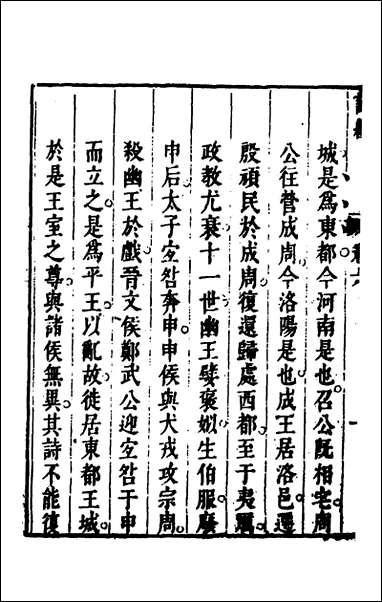 城是爲東都今河南是也召公既相宅周
公往營成周今洛陽是也成王居洛邑遷
殷頑民於成周復還歸處西都至于夷厲
政教尤衰十一世幽王嬖褒姒生伯服廢
申后太子宜咎奔申申侯與犬戎攻宗周
殺幽王於戲晉文侯鄭武公迎宜咎于申
而立之是爲平王以亂故徙居東都王城
於是王室之尊與諸侯無異其詩不能復